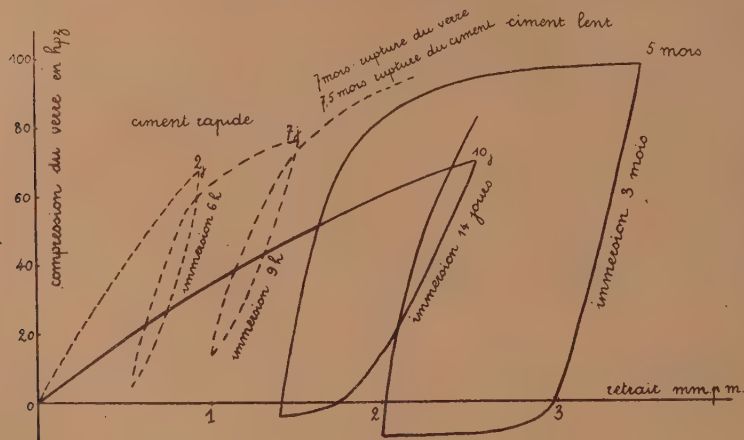 compression du verre en hpz
100
80
60
40
20
0
7 mois rupture du verre
7,5 mois rupture du ciment
ciment lent
5 mois
ciment rapide
2j
7j
10j
immersion 6h
immersion 9h
immersion 14 jours
immersion 3 mois
retrait mm.p m.
1
2
3